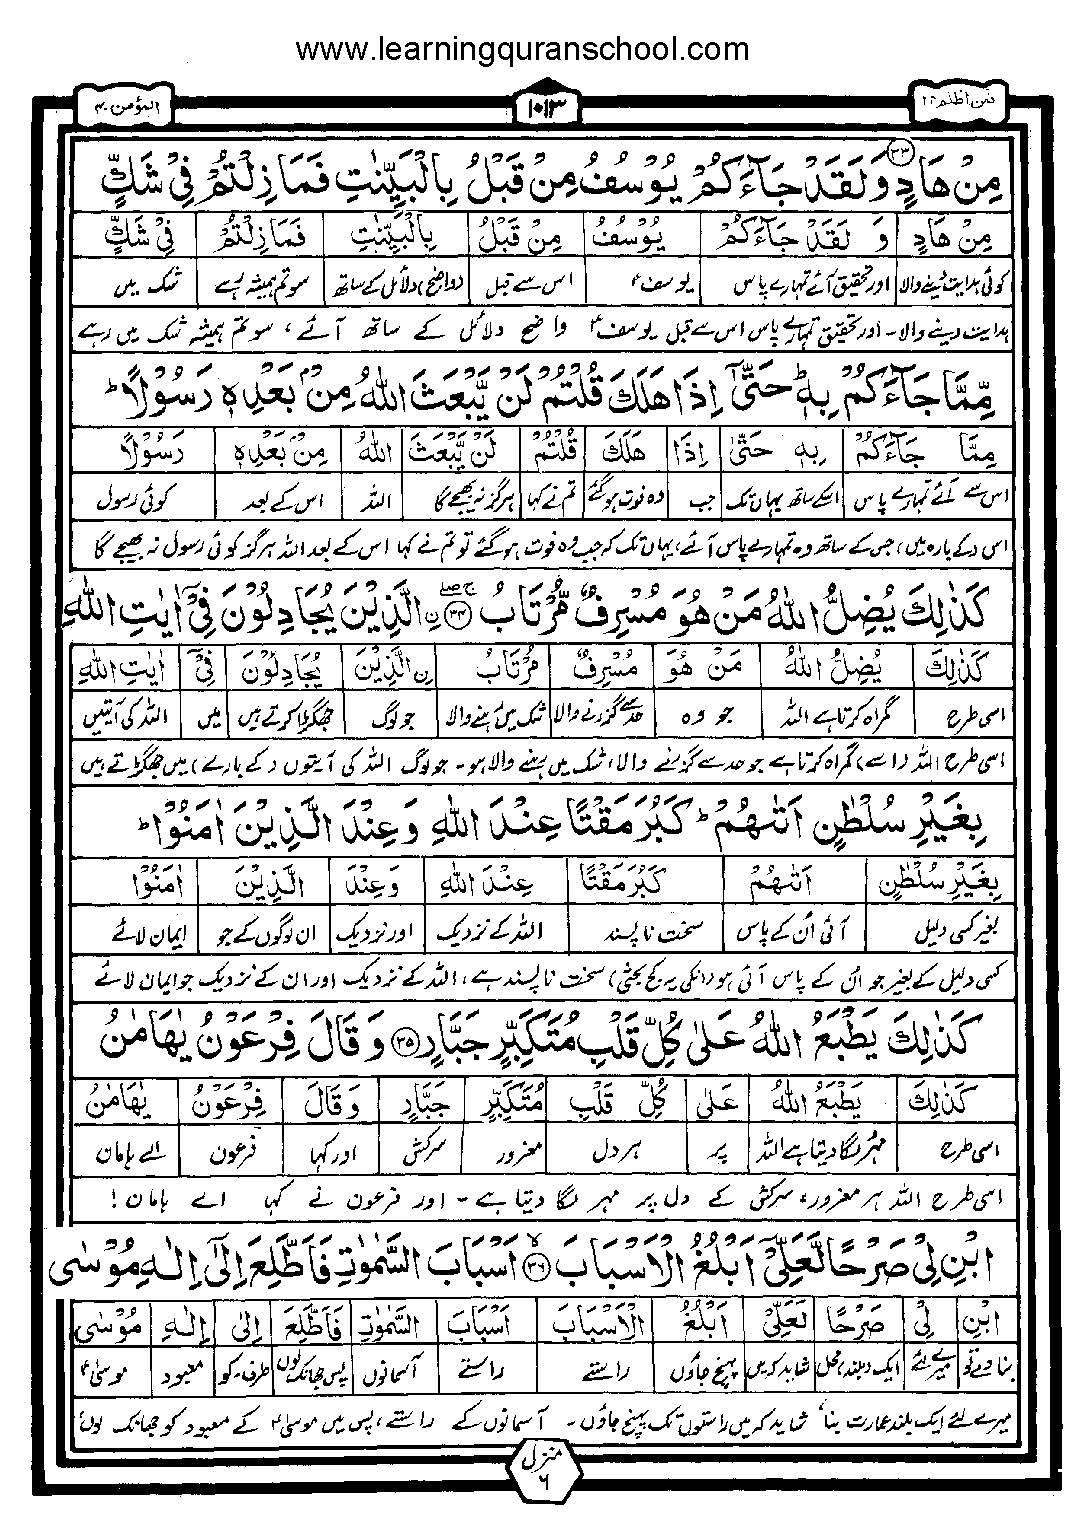 www.learningquranschool.com
فمن اظلم ۲۴ ۱۰۱۳ المؤمن ۴۰
مِنْ هَادٍ ۳۳ وَلَقَدْ جَآءَكُمْ يُوْسُفُ مِنْ قَبْلُ بِالْبَيِّنٰتِ فَمَا زِلْتُمْ فِيْ شَكٍّ
مِنْ هَادٍ وَ لَقَدْ جَآءَكُمْ يُوْسُفُ مِنْ قَبْلُ بِالْبَيِّنٰتِ فَمَا زِلْتُمْ فِيْ شَكٍّ
کوئی ہدایت دینے والا اور تحقیق آئے تمہارے پاس یوسفؑ اس سے قبل (واضح) دلائل کے ساتھ سو تم ہمیشہ رہے شک میں
ہدایت دینے والا۔ اور تحقیق تمہارے پاس اس سے قبل یوسفؑ واضح دلائل کے ساتھ آئے، سو تم ہمیشہ شک میں رہے
مِّمَّا جَآءَكُمْ بِهٖ ؕ حَتّٰٓى اِذَا هَلَكَ قُلْتُمْ لَنْ يَّبْعَثَ اللّٰهُ مِنْۢ بَعْدِهٖ رَسُوْلًا ؕ
مِمَّا جَآءَكُمْ بِهٖ حَتّٰى اِذَا هَلَكَ قُلْتُمْ لَنْ يَّبْعَثَ اللّٰهُ مِنْۢ بَعْدِهٖ رَسُوْلًا
اس سے آئے تمہارے پاس اسکے ساتھ یہاں تک جب وہ فوت ہو گئے تم نے کہا ہرگز نہ بھیجے گا اللہ اس کے بعد کوئی رسول
اس (کے بارہ میں) جس کے ساتھ وہ تمہارے پاس آئے، یہاں تک کہ جب وہ فوت ہو گئے تو تم نے کہا اس کے بعد اللہ ہرگز کوئی رسول نہ بھیجے گا
كَذٰلِكَ يُضِلُّ اللّٰهُ مَنْ هُوَ مُسْرِفٌ مُّرْتَابُ ۳۴ ۨالَّذِيْنَ يُجَادِلُوْنَ فِيْٓ اٰيٰتِ اللّٰهِ
كَذٰلِكَ يُضِلُّ اللّٰهُ مَنْ هُوَ مُسْرِفٌ مُّرْتَابُ ۨالَّذِيْنَ يُجَادِلُوْنَ فِيْٓ اٰيٰتِ اللّٰهِ
اسی طرح گمراہ کرتا ہے اللہ جو وہ حد سے گزرنے والا شک میں رہنے والا جو لوگ جھگڑا کرتے ہیں میں اللہ کی آیتیں
اسی طرح اللہ (اسے) گمراہ کرتا ہے جو حد سے گزرنے والا، شک میں رہنے والا ہو۔ جو لوگ اللہ کی آیتوں (کے بارے) میں جھگڑتے ہیں
بِغَيْرِ سُلْطٰنٍ اَتٰىهُمْ ؕ كَبُرَ مَقْتًا عِنْدَ اللّٰهِ وَعِنْدَ الَّذِيْنَ اٰمَنُوْا ؕ
بِغَيْرِ سُلْطٰنٍ اَتٰىهُمْ كَبُرَ مَقْتًا عِنْدَ اللّٰهِ وَعِنْدَ الَّذِيْنَ اٰمَنُوْا
بغیر کسی دلیل آئی اُن کے پاس سخت ناپسند اللہ کے نزدیک اور نزدیک ان لوگوں کے جو ایمان لائے
کسی دلیل کے بغیر جو ان کے پاس آئی ہو (انکی یہ کج بحثی) سخت ناپسند ہے، اللہ کے نزدیک اور ان کے نزدیک جو ایمان لائے
كَذٰلِكَ يَطْبَعُ اللّٰهُ عَلٰى كُلِّ قَلْبِ مُتَكَبِّرٍ جَبَّارٍ ۳۵ وَقَالَ فِرْعَوْنُ يٰهَامٰنُ
كَذٰلِكَ يَطْبَعُ اللّٰهُ عَلٰى كُلِّ قَلْبِ مُتَكَبِّرٍ جَبَّارٍ وَقَالَ فِرْعَوْنُ يٰهَامٰنُ
اسی طرح مہر لگا دیتا ہے اللہ پر ہر دل مغرور سرکش اور کہا فرعون اے ہامان
اسی طرح اللہ ہر مغرور، سرکش کے دل پر مہر لگا دیتا ہے۔ اور فرعون نے کہا اے ہامان!
ابْنِ لِيْ صَرْحًا لَّعَلِّيْٓ اَبْلُغُ الْاَسْبَابَ ۳۶ اَسْبَابَ السَّمٰوٰتِ فَاَطَّلِعَ اِلٰٓى اِلٰهِ مُوْسٰى
ابْنِ لِيْ صَرْحًا لَّعَلِّيْٓ اَبْلُغُ الْاَسْبَابَ اَسْبَابَ السَّمٰوٰتِ فَاَطَّلِعَ اِلٰى اِلٰهِ مُوْسٰى
بنا دے تو میرے لئے ایک (بلند) محل شاید کہ میں پہنچ جاؤں راستے راستے آسمانوں پس جھانک لوں طرف۔ کو معبود موسیٰؑ
میرے لئے ایک بلند عمارت بنا، شاید کہ میں راستوں تک پہنچ جاؤں۔ آسمانوں کے راستے، پس میں موسیٰؑ کے معبود کو جھانک لوں،
منزل ۶